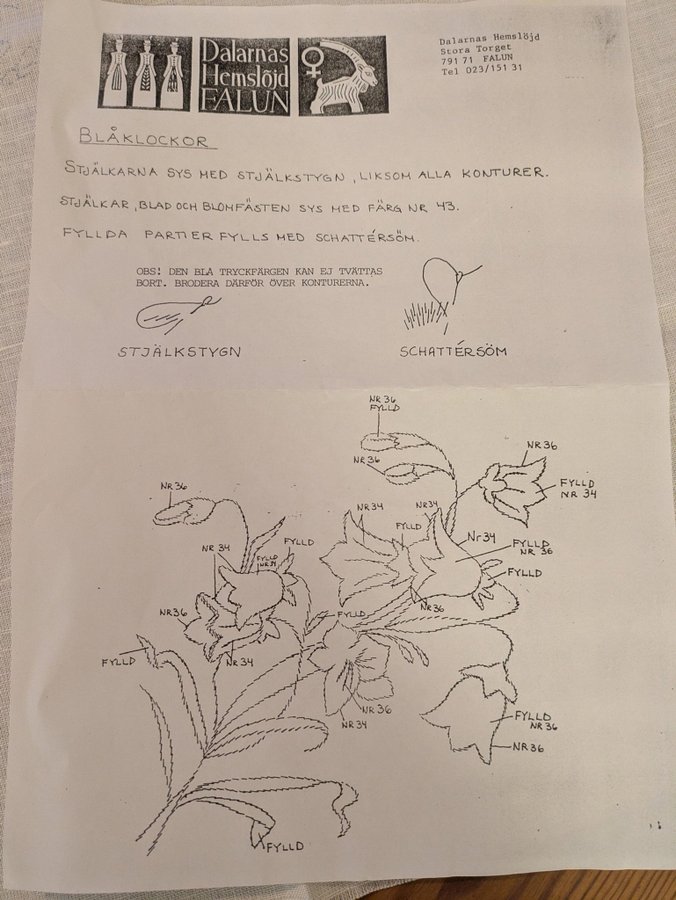 Dalarnas
Hemslöjd
FALUN
Dalarnas Hemslöjd
Stora Torget
791 71 FALUN
Tel 023/151 31
BLÅKLOCKOR
STJÄLKARNA SYS MED STJÄLKSTYGN, LIKSOM ALLA KONTURER.
STJÄLKAR, BLAD OCH BLOMFÄSTEN SYS MED FÄRG NR 43.
FYLLDA PARTIER FYLLS MED SCHATTÉRSÖM.
OBS! DEN BLÅ TRYCKFÄRGEN KAN EJ TVÄTTAS
BORT. BRODERA DÄRFÖR ÖVER KONTURERNA.
STJÄLKSTYGN
SCHATTÉRSÖM
NR 36
FYLLD
NR 36
NR 36
FYLLD
NR 34
NR 36
NR 34
NR 34
FYLLD
Nr 34
FYLLD
NR 36
FYLLD
NR 34
FYLLD
FYLLD
NR 34
NR 36
FYLLD
NR 36
NR 34
FYLLD
NR 36
NR 34
FYLLD
NR 36
NR 36
FYLLD